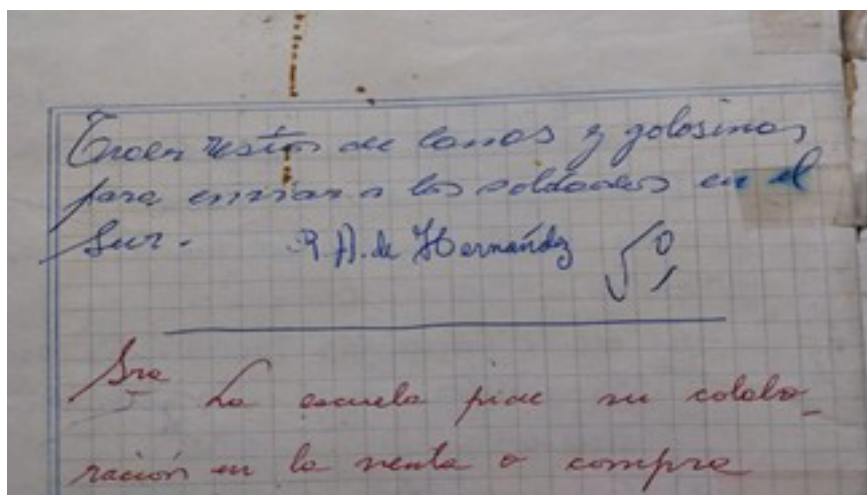 Traer restos de lanas y golosinas
para enviar a los soldados en el
Sur.
R. A. de Hernández
Sra La escuela pide su colabo_
ración en la venta o compra